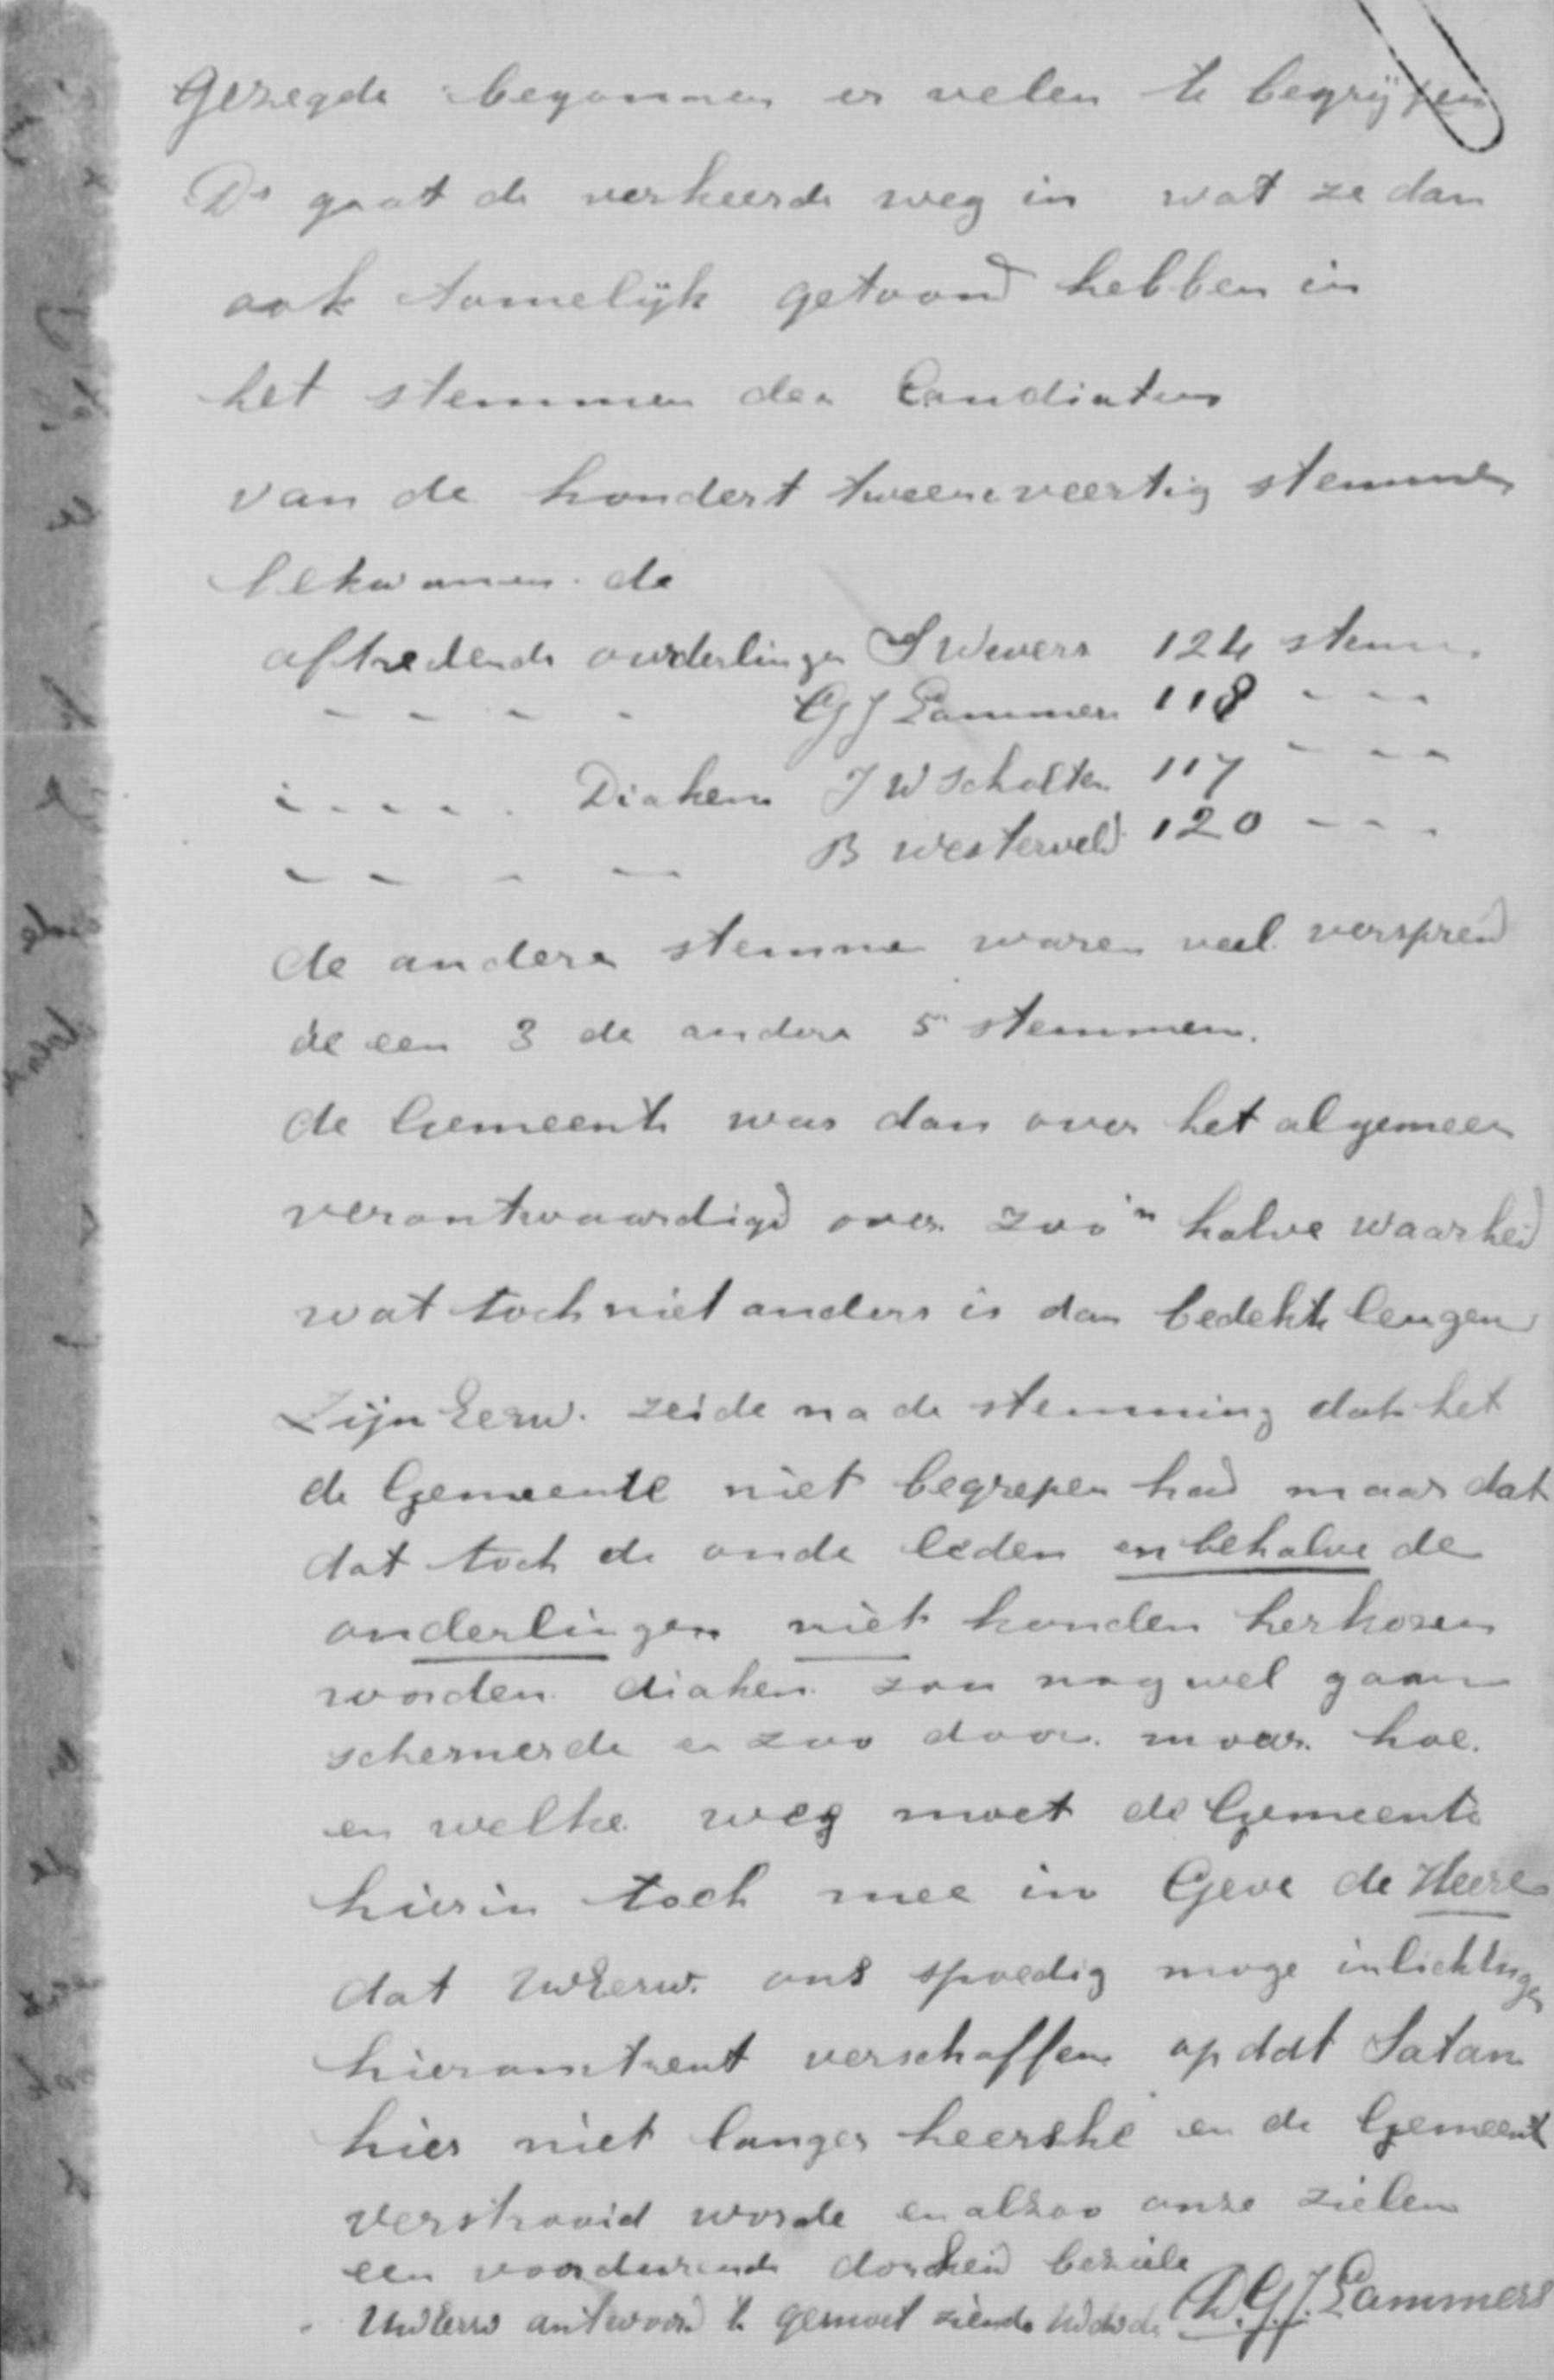 Gezegde begonnen er velen te begrijpen
Ds gaat de verkeerde weg in wat ze dan
ook tamelijk getoond hebben in
het stemmen der Candiaten
van de hondert tweeneveertig stemmen
bekwamen de
aftredende ouderlingen S Wevers 124 stem
- - - - GJ Lammers 118 - - -
- - - - Diaken J W Scholten 117 - - -
- - - - B Westerveld 120 - - -
de andere stemmen waren veel verspreid
de een 3 de andere 5 stemmen.
de Gemeente was dan over het algemeen
verontwaardigd over zoo'n halve waarheid
wat toch niet anders is dan bedekte leugen
Zijn Eerw. zeide na de stemming dat het
de Gemeente niet begrepen had maar dat
dat toch de oude leden en behalve de
ouderlingen niet konden herkozen
worden diaken zou nog wel gaan
schemerde er zoo door. maar hoe.
en welke weg moet de Gemeente
hierin toch mee in Geve de Heere
dat UwEerw. ons spoedig moge inlichtingen
hieromtrent verschaffen opdat Satan
hier niet langer heersche en de Gemeente
verstrooid worde en alzoo onze zielen
een voordurende dorheid beziele
UwEerw antwoord te gemoet ziende Uwdwd. D. G.J. Lammers